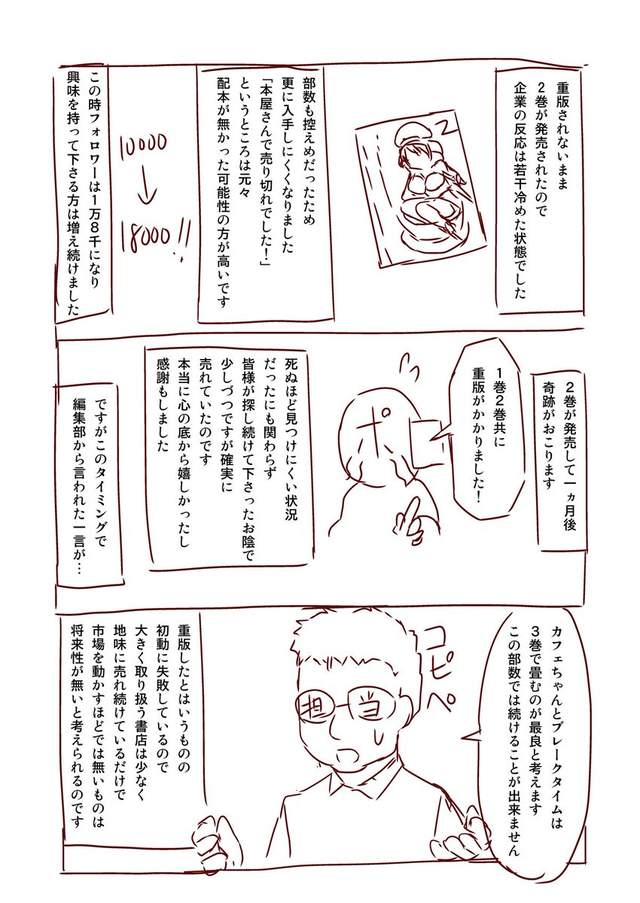 重版されないまま
2巻が発売されたので
企業の反応は若干冷めた状態でした
2
部数も控えめだったため
更に入手しにくくなりました
「本屋さんで売り切れでした！」
というところは元々
配本が無かった可能性の方が高いです
10000
↓
18000!!
この時フォロワーは1万8千になり
興味を持って下さる方は増え続けました
2巻が発売して一ヵ月後
奇跡がおこります
1巻2巻共に
重版がかかりました！
ポ
死ぬほど見つけにくい状況
だったにも関わらず
皆様が探し続けて下さったお陰で
少しづつですが確実に
売れていたのです
本当に心の底から嬉しかったし
感謝もしました
ですがこのタイミングで
編集部から言われた一言が…
カフェちゃんとブレークタイムは
3巻で畳むのが最良と考えます
この部数では続けることが出来ません
コピペ
担当
重版したとはいうものの
初動に失敗しているので
大きく取り扱う書店は少なく
地味に売れ続けているだけで
市場を動かすほどでは無いものは
将来性が無いと考えられるのです